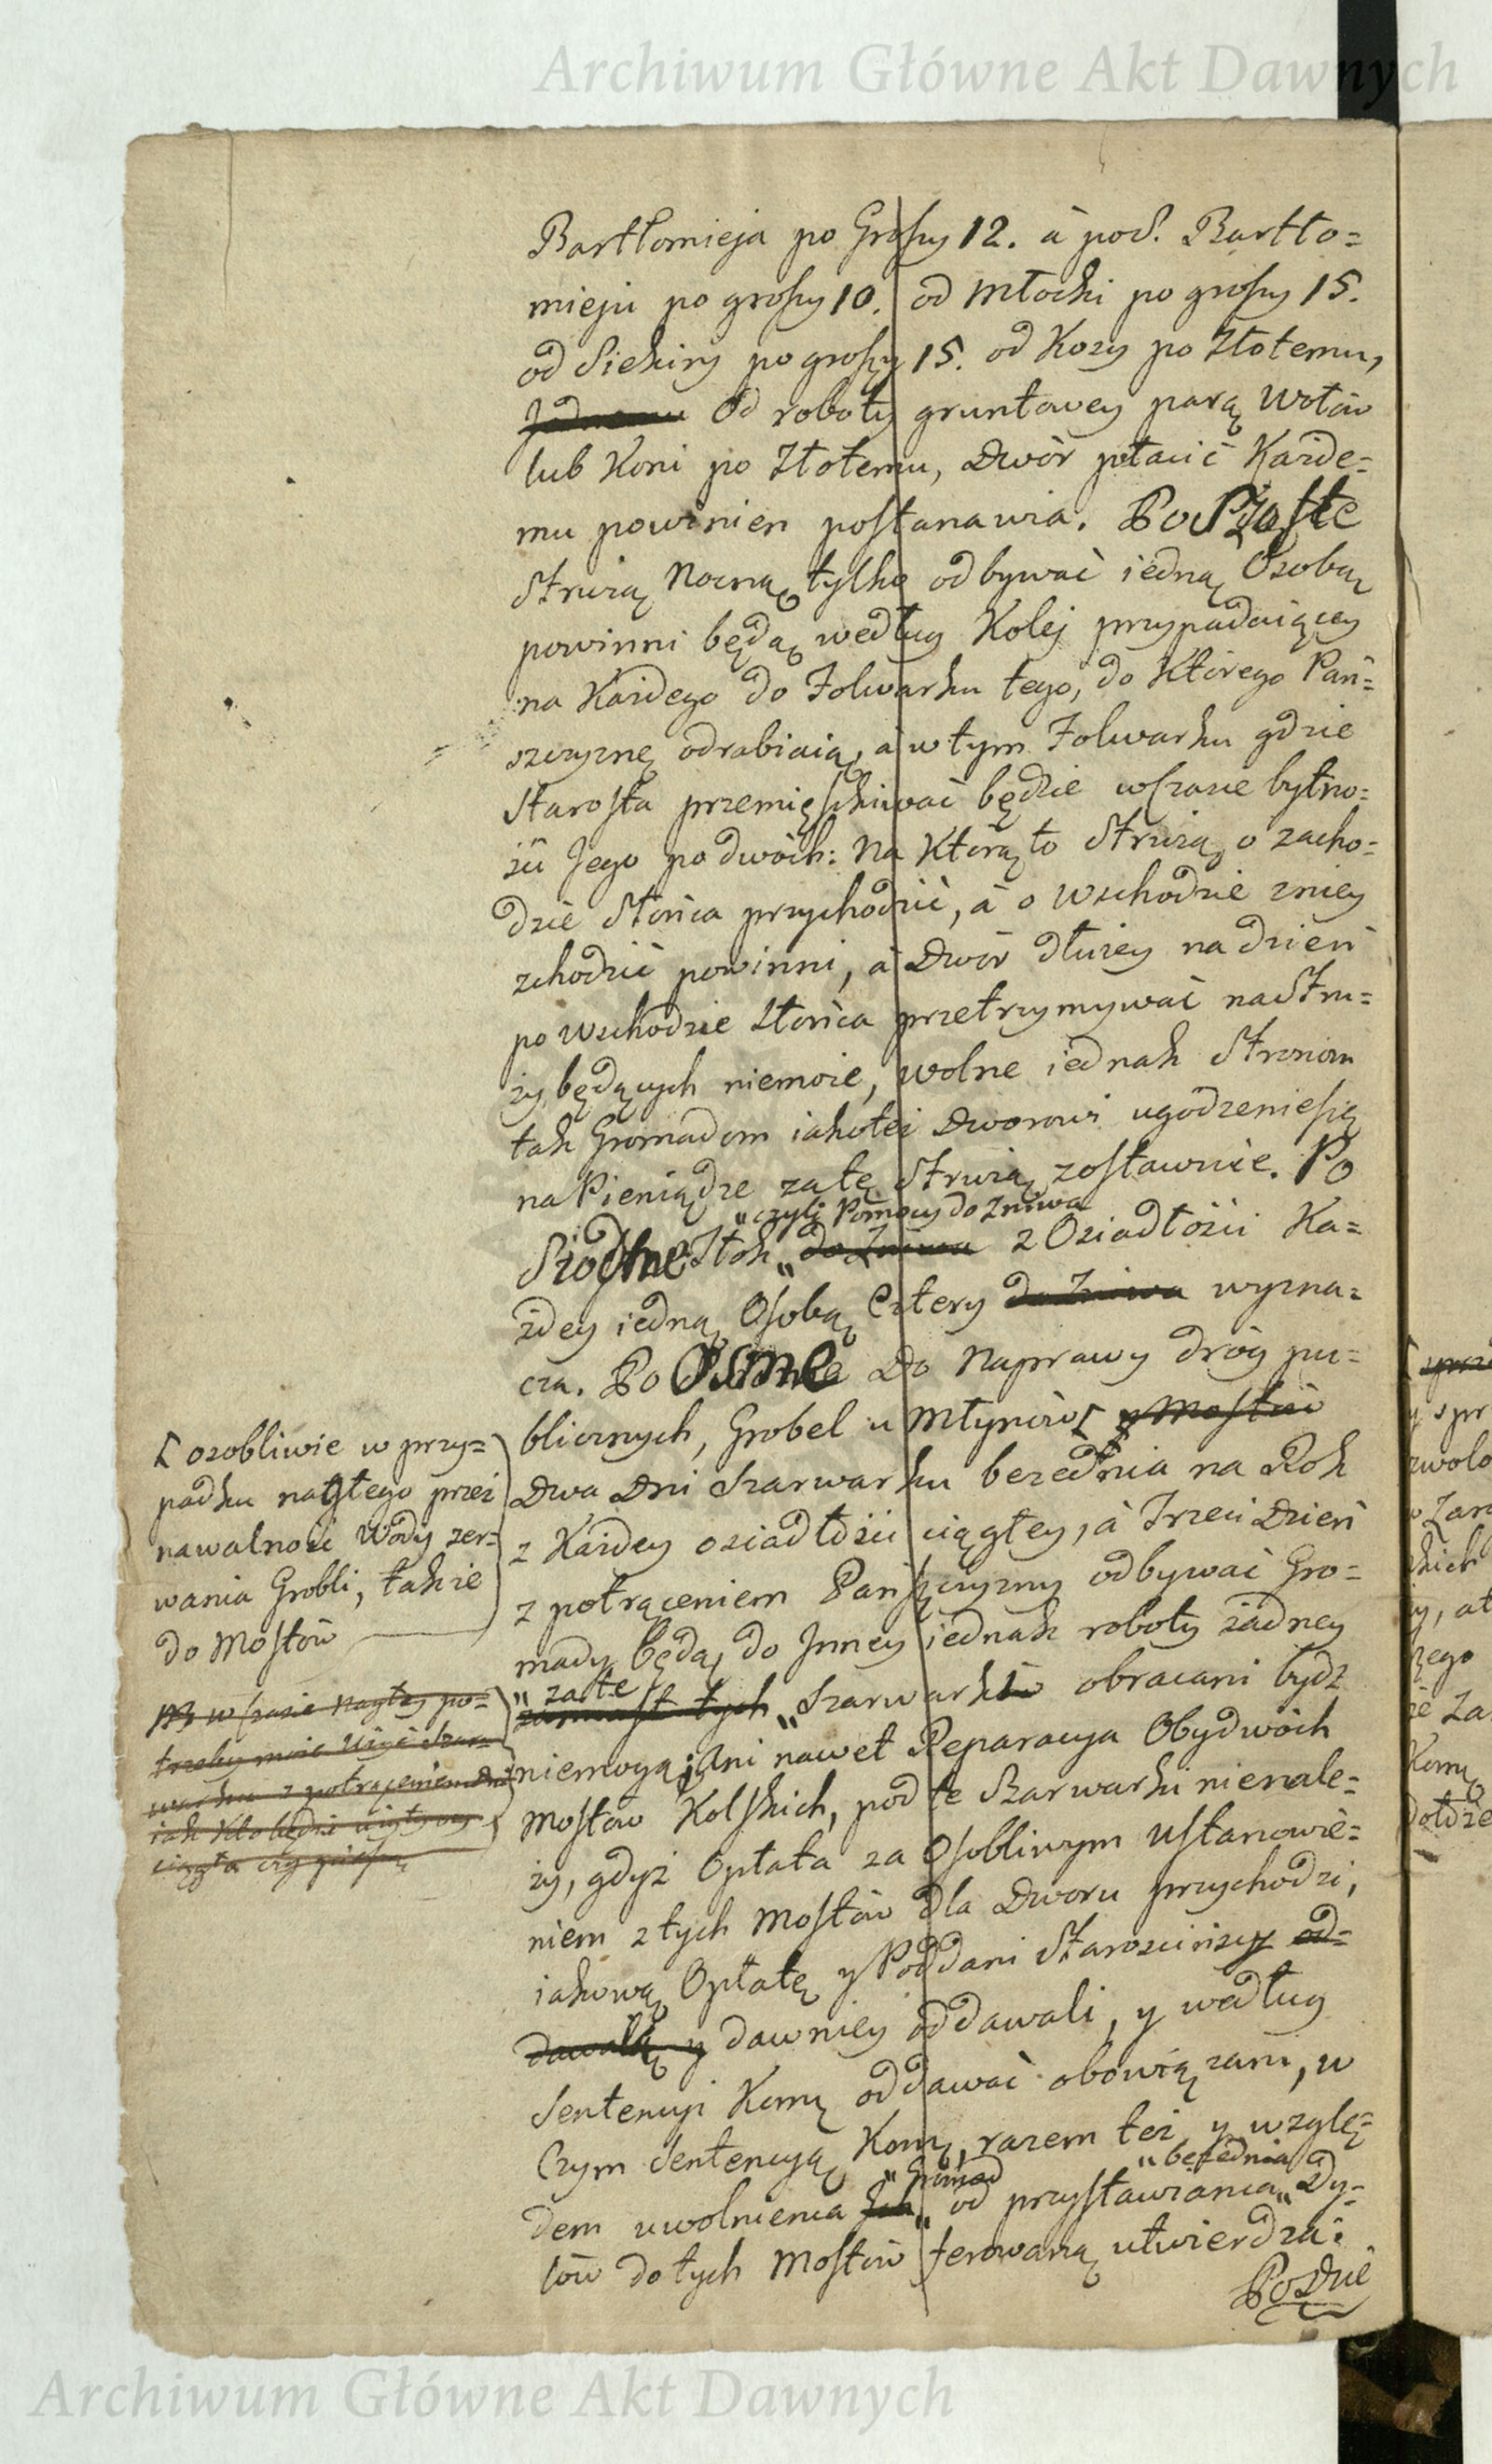 Archiwum Główne Akt Dawnych
Bartłomieja po Groszy 12. à poś. Bartło=
mieju po groszy 10. od Młocki po groszy 15.
od Siekiry po groszy 15. od Kosy po Złotemu,
Od roboty gruntowey parą Wołów
lub Koni po Złotemu, Dwór płacić Każde=
mu powinien postanawia. Po Szoste
Strużą Nocną tylko odbywać iedną Osobą
powinni będą według Kolej przypadaiącey
na Każdego do Folwarku tego, do Którego Pań=
szczyznę odrabiaią, a w tym Folwarku gdzie
Starosta przemięszkiwać będzie w czasie bytno=
źći Jego po dwóch: Na Którą to Strużą o zacho=
dzie Słońca przychodzić, à o Wschodzie zniey
zchodzić powinni, à Dwór dłużey na dzień
po Wschodzie Słońca przetrzymywać na Stru=
ży będących niemoże, wolne iednak Stronom
tak Gromadom iakoteż Dworowi ugodzenie się
na Pieniądze zatę Strużą zostawuie. Po
"czyli Pomocy do Zniwa
Siodme Tłok „do Zniwa z Osiadłości Ka=
żdey iedną Osobą Cztery do Zniwa wyzna=
cza. Po Osme Do Naprawy dróg pu=
blicznych, Grobel u Młynów [ y Mostów
Dwa Dni Szarwarku bezednia na Rok
z Każdey osiadłości ciągłey, à Trzeci Dzień
z potrąceniem Pańszczyzny odbywać Gro=
mady będą, do Inney iednak roboty żadney
" za te
zamiast tych „Szarwarki obracani bydź
niemogą; Ani nawet Reparacya Obydwóch
Mostów Kolskich, pod te Szarwarki nienale=
ży, gdyż Opłata za Osobliwym Ustanowie=
niem z tych Mostów dla Dworu przychodzi,
iakową Opłatę y Poddani Starościńscy od=
dawalą y dawniey oddawali, y według
Sentencyi Komy oddawać obowiązani, w
Czym Sentencyą Komy, razem też y wzglę=
"Gromad "bezednia
dem uwolnienia Ich „od przystawiania „Dy=
lów do tych Mostów ferowaną utwierdza:
Po Dzie
[ osobliwie w przy=
padku nagłego przez
nawalność Wody zer=
wania Grobli, także
do Mostów
NB w czasie nagłey po=
trzeby może użyć Szar=
warku z potrąceniem dnia
iak kto będzie użyty czy
ciągła czy pieszą
Archiwum Główne Akt Dawnych